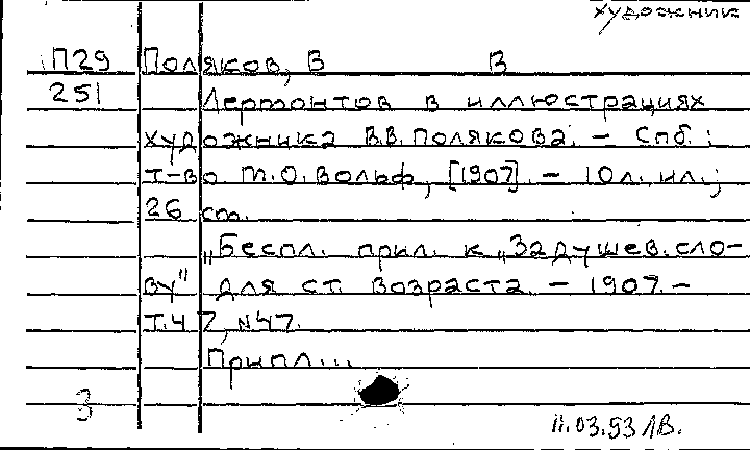 художник
П29 Поляков, В В
251 Лермонтов в иллюстрациях
художника В.В. Полякова. – Спб.:
т-во М.О. Вольф, [1907]. – 10 л. ил.;
26 см.
„Беспл. прил. к „Задушев. сло-
ву" для ст. возраста. – 1907. –
Т. 47, №47.
Припл...
3
11.03.53 ЛВ.